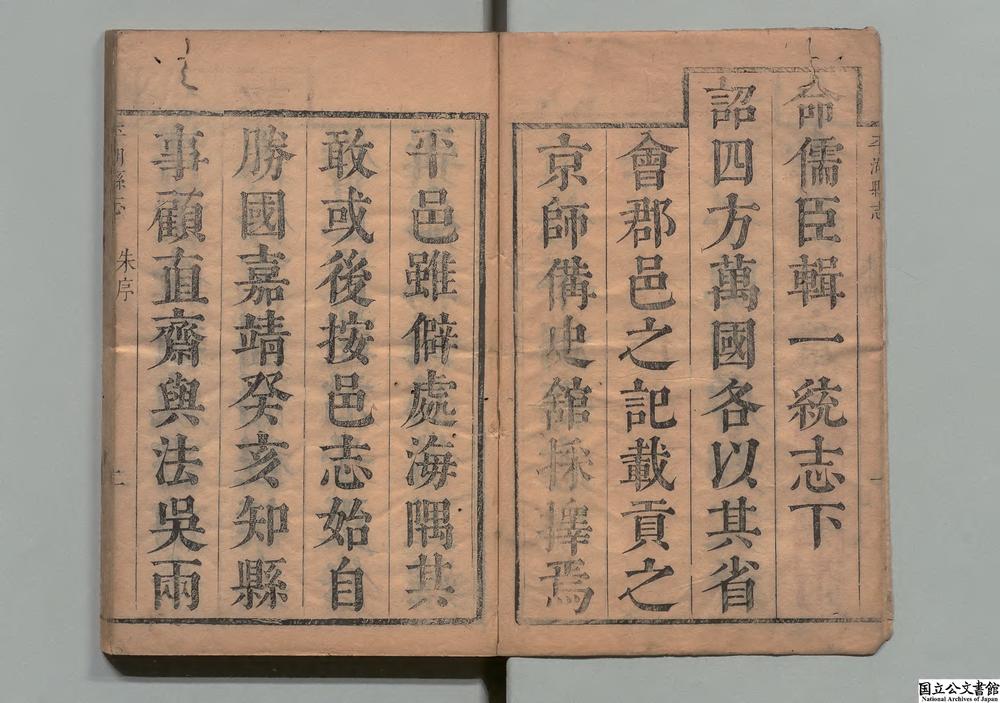 命儒臣輯一統志下
詔四方萬國各以其省
會郡邑之記載貢之
京師備史舘採擇焉
平邑雖僻處海隅其
敢或後按邑志始自
勝國嘉靖癸亥知縣
事顧直齋與法吳兩
平湖縣志
一
平湖縣志
朱序
二
国立公文書館
National Archives of Japan